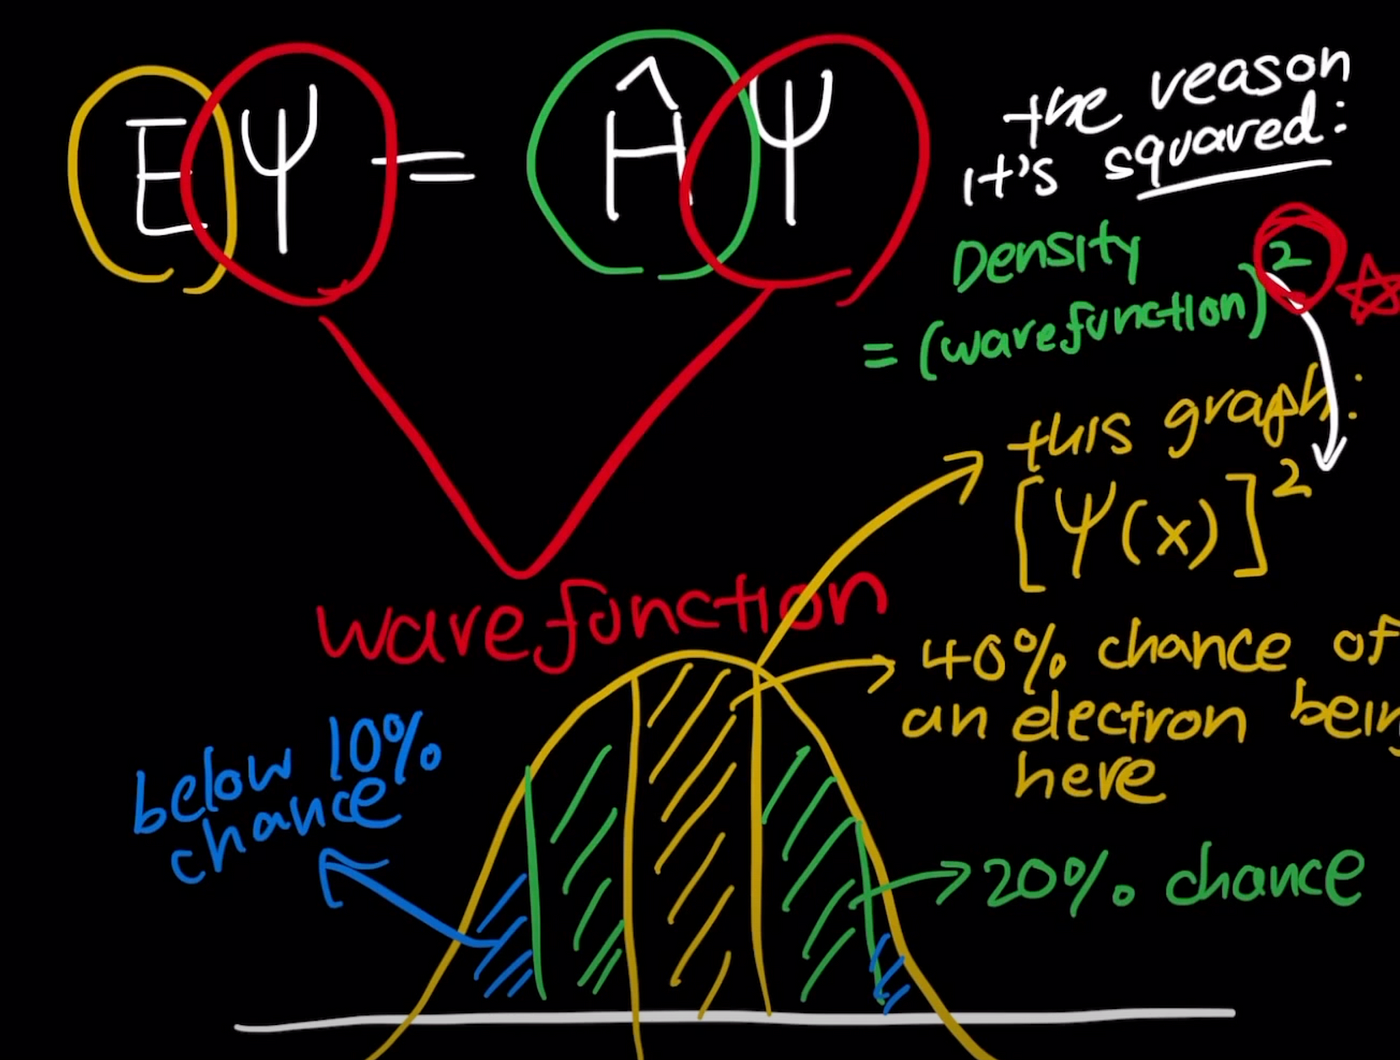 EΨ = ĤΨ
the reason
it's squared:
Density
= (wavefunction)²
this graph:
[Ψ(x)]²
wavefunction
40% chance of
an electron bein
here
below 10%
chance
20% chance